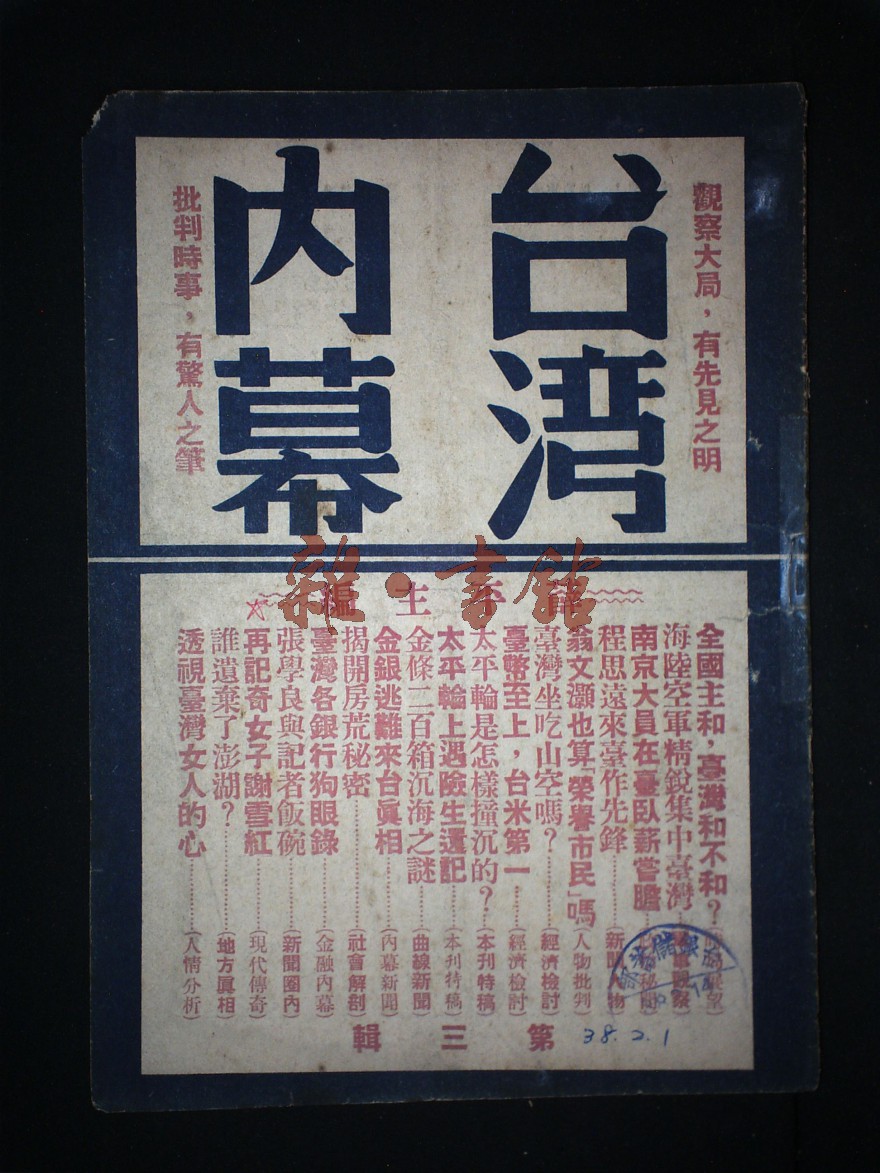 觀察大局，有先見之明
台湾
内幕
批判時事，有驚人之筆
主編
雜·書館
全國主和，臺灣和不和？
海陸空軍精銳集中臺灣
南京大員在臺臥薪嘗膽
程思遠來臺作先鋒（新聞人物）
翁文灝也算「榮譽市民」嗎（人物批判）
臺灣坐吃山空嗎？（經濟檢討）
臺幣至上，台米第一（經濟檢討）
太平輪是怎樣撞沉的？（本刊特稿）
太平輪上遇險生還記（本刊特稿）
金條二百箱沉海之謎（曲線新聞）
金銀逃難來台眞相（內幕新聞）
揭開房荒秘密（社會解剖）
臺灣各銀行狗眼錄（金融內幕）
張學良與記者飯碗（新聞圈內）
再記奇女子謝雪紅（現代傳奇）
誰遺棄了澎湖？（地方眞相）
透視臺灣女人的心（人情分析）
第三輯
38.2.1